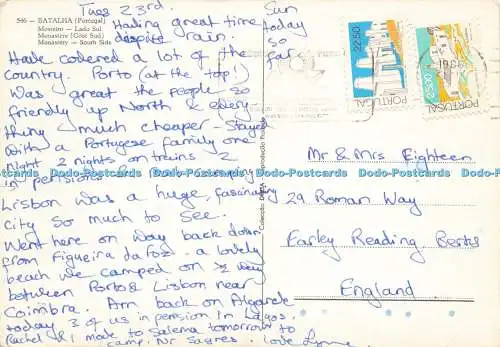 546 - BATALHA (Portugal)
Mosteiro - Lado Sul
Monastère (Côté Sud)
Monastery - South Side
Tues 23rd
Having great time
despite rain. Sun
today
so
far.
Have covered a lot of the
country. Porto (at the top!)
was great the people so
friendly up North & every
thing much cheaper - stayed
with a Portugese family one
night 2 nights on trains 2
in pensions
Lisbon was a huge, fascinating
city so much to see.
Went here on way back down
from Figueira da Foz - a lovely
beach we camped on ½ way
between Porto & Lisbon near
Coimbra. Am back on Algarde
today 3 of us in pension in Lagos.
Rachel & I make to Salema tomorrow to
camp. Nr Sagres. Love Lynne
22$50
PORTUGAL
PORTUGAL
Mr & Mrs Eighteen
29 Roman Way
Farley Reading, Berks
England
Dodo-Postcards Dodo-Postcards Dodo-Postcards Dodo-Postcards Dodo-Postcards Dodo-Postcards